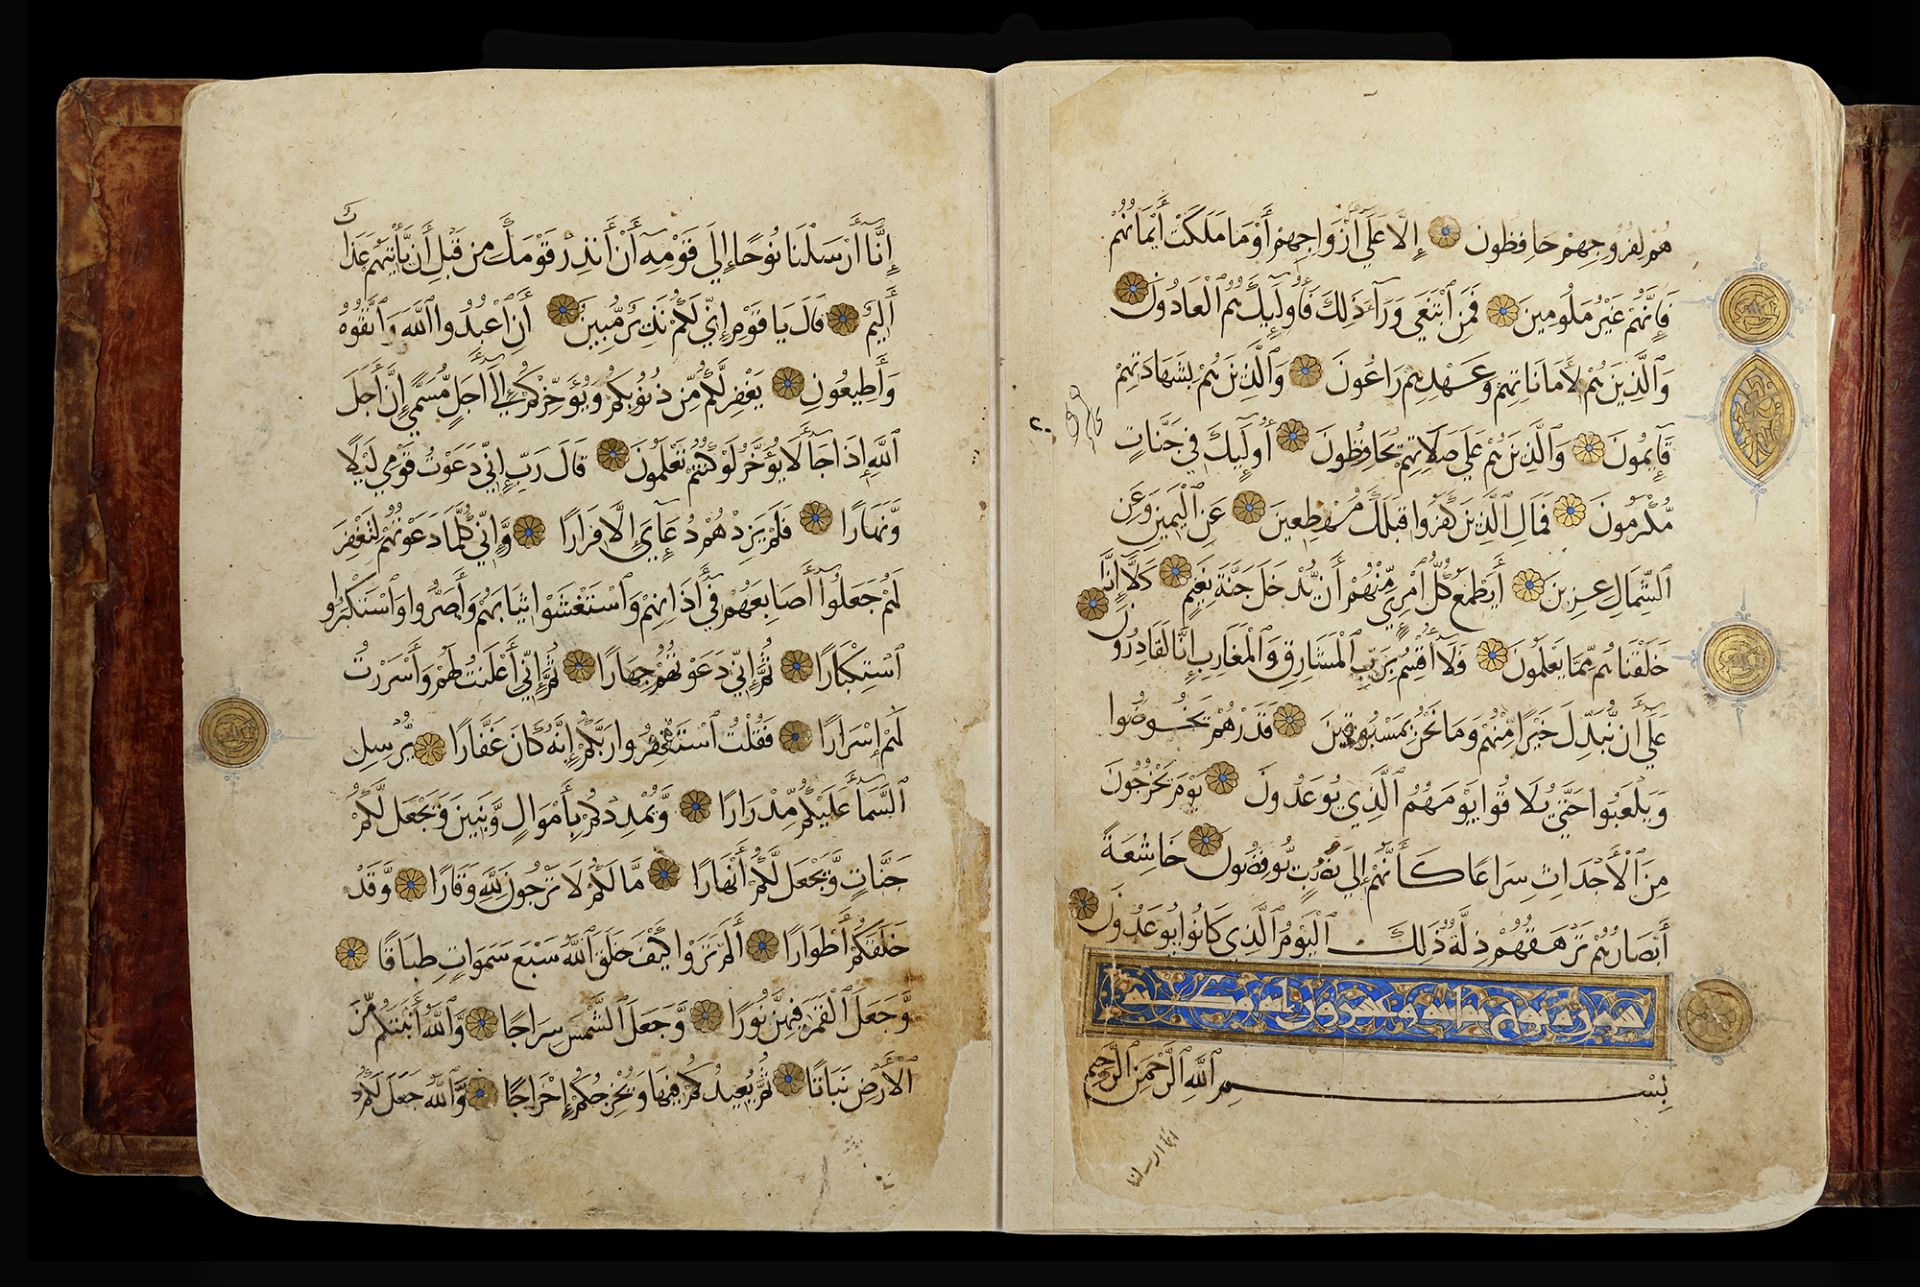 هُمْ لِفُرُوجِهِمْ حَافِظُونَ إِلَّا عَلَىٰ أَزْوَاجِهِمْ أَوْ مَا مَلَكَتْ أَيْمَانُهُمْ
فَإِنَّهُمْ غَيْرُ مَلُومِينَ فَمَنِ ٱبْتَغَىٰ وَرَآءَ ذَٰلِكَ فَأُولَٰٓئِكَ هُمُ ٱلْعَادُونَ
وَٱلَّذِينَ هُمْ لِأَمَانَاتِهِمْ وَعَهْدِهِمْ رَاعُونَ وَٱلَّذِينَ هُمْ بِشَهَادَتِهِمْ
قَآئِمُونَ وَٱلَّذِينَ هُمْ عَلَىٰ صَلَاتِهِمْ يُحَافِظُونَ أُولَٰٓئِكَ فِي جَنَّاتٍ
مُّكْرَمُونَ فَمَالِ ٱلَّذِينَ كَفَرُوا قِبَلَكَ مُهْطِعِينَ عَنِ ٱلْيَمِينِ وَعَنِ
ٱلشِّمَالِ عِزِينَ أَيَطْمَعُ كُلُّ ٱمْرِئٍ مِّنْهُمْ أَن يُدْخَلَ جَنَّةَ نَعِيمٍ كَلَّآ إِنَّا
خَلَقْنَاهُم مِّمَّا يَعْلَمُونَ فَلَآ أُقْسِمُ بِرَبِّ ٱلْمَشَارِقِ وَٱلْمَغَارِبِ إِنَّا لَقَادِرُونَ
عَلَىٰٓ أَن نُّبَدِّلَ خَيْرًا مِّنْهُمْ وَمَا نَحْنُ بِمَسْبُوقِينَ فَذَرْهُمْ يَخُوضُوا
وَيَلْعَبُوا حَتَّىٰ يُلَاقُوا يَوْمَهُمُ ٱلَّذِي يُوعَدُونَ يَوْمَ يَخْرُجُونَ
مِنَ ٱلْأَجْدَاثِ سِرَاعًا كَأَنَّهُمْ إِلَىٰ نُصُبٍ يُوفِضُونَ خَاشِعَةً
أَبْصَارُهُمْ تَرْهَقُهُمْ ذِلَّةٌ ذَٰلِكَ ٱلْيَوْمُ ٱلَّذِي كَانُوا يُوعَدُونَ
سورة نوح وعشرون
بِسْمِ ٱللَّهِ ٱلرَّحْمَٰنِ ٱلرَّحِيمِ
انا ارسلنا
إِنَّآ أَرْسَلْنَا نُوحًا إِلَىٰ قَوْمِهِۦٓ أَنْ أَنذِرْ قَوْمَكَ مِن قَبْلِ أَن يَأْتِيَهُمْ عَذَابٌ
أَلِيمٌ قَالَ يَا قَوْمِ إِنِّي لَكُمْ نَذِيرٌ مُّبِينٌ أَنِ ٱعْبُدُوا ٱللَّهَ وَٱتَّقُوهُ
وَأَطِيعُونِ يَغْفِرْ لَكُم مِّن ذُنُوبِكُمْ وَيُؤَخِّرْكُمْ إِلَىٰٓ أَجَلٍ مُّسَمًّى إِنَّ أَجَلَ
ٱللَّهِ إِذَا جَآءَ لَا يُؤَخَّرُ لَوْ كُنتُمْ تَعْلَمُونَ قَالَ رَبِّ إِنِّي دَعَوْتُ قَوْمِي لَيْلًا
وَّنَهَارًا فَلَمْ يَزِدْهُمْ دُعَآءِي إِلَّا فِرَارًا وَّإِنِّي كُلَّمَا دَعَوْتُهُمْ لِتَغْفِرَ
لَهُمْ جَعَلُوٓا أَصَابِعَهُمْ فِيٓ أَذَانِهِمْ وَٱسْتَغْشَوْا ثِيَابَهُمْ وَأَصَرُّوا وَٱسْتَكْبَرُوا
ٱسْتِكْبَارًا ثُمَّ إِنِّي دَعَوْتُهُمْ جِهَارًا ثُمَّ إِنِّي أَعْلَنتُ لَهُمْ وَأَسْرَرْتُ
لَهُمْ إِسْرَارًا فَقُلْتُ ٱسْتَغْفِرُوا رَبَّكُمْ إِنَّهُ كَانَ غَفَّارًا يُّرْسِلِ
ٱلسَّمَآءَ عَلَيْكُم مِّدْرَارًا وَّيُمْدِدْكُم بِأَمْوَالٍ وَّبَنِينَ وَيَجْعَل لَّكُمْ
جَنَّاتٍ وَّيَجْعَل لَّكُمْ أَنْهَارًا مَّا لَكُمْ لَا تَرْجُونَ لِلَّهِ وَقَارًا وَّقَدْ
خَلَقَكُمْ أَطْوَارًا أَلَمْ تَرَوْا كَيْفَ خَلَقَ ٱللَّهُ سَبْعَ سَمَوَاتٍ طِبَاقًا
وَّجَعَلَ ٱلْقَمَرَ فِيهِنَّ نُورًا وَّجَعَلَ ٱلشَّمْسَ سِرَاجًا وَّٱللَّهُ أَنبَتَكُم مِّنَ
ٱلْأَرْضِ نَبَاتًا ثُمَّ يُعِيدُكُمْ فِيهَا وَيُخْرِجُكُمْ إِخْرَاجًا وَّٱللَّهُ جَعَلَ لَكُمُ